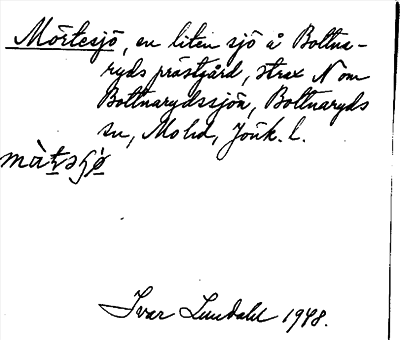 Mörtesjö, en liten sjö å Boltna-
ryds prästgård, strax N om
Boltnarydssjön, Boltnaryds
sn, Mo hd, Jönk. l.
Ivar Lundahl 1948.